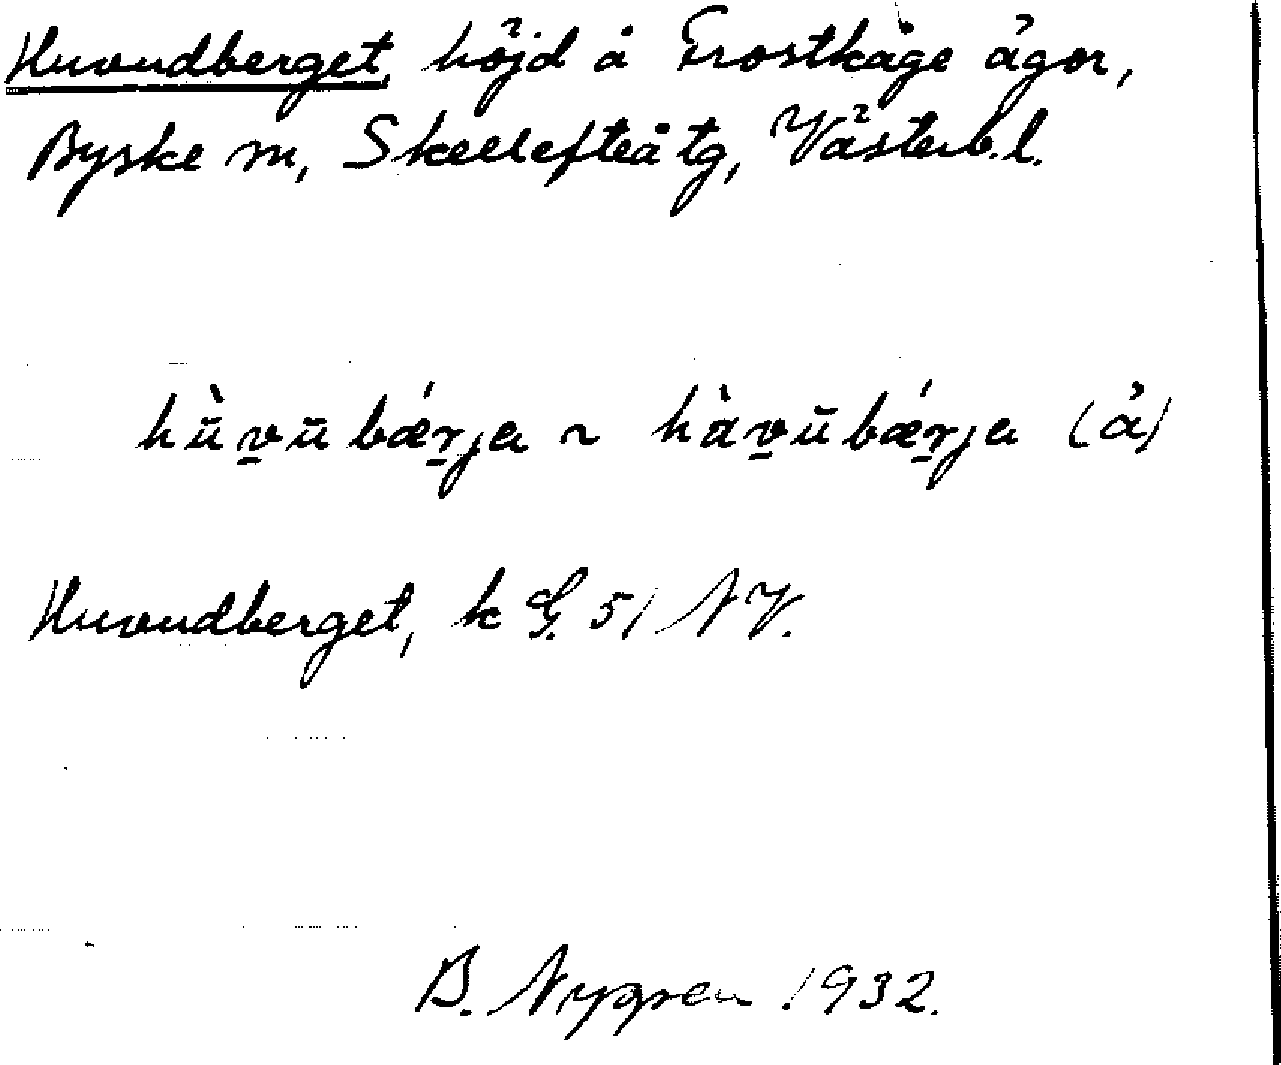 Huvudberget, höjd å Frostkåge ägor,
Byske sn, Skellefteå tg, Västerb.l.
hùvu bǽrja ~ hàvu bǽrja (å)
Huvudberget, k G. 51 NV.
B. Nygren 1932.